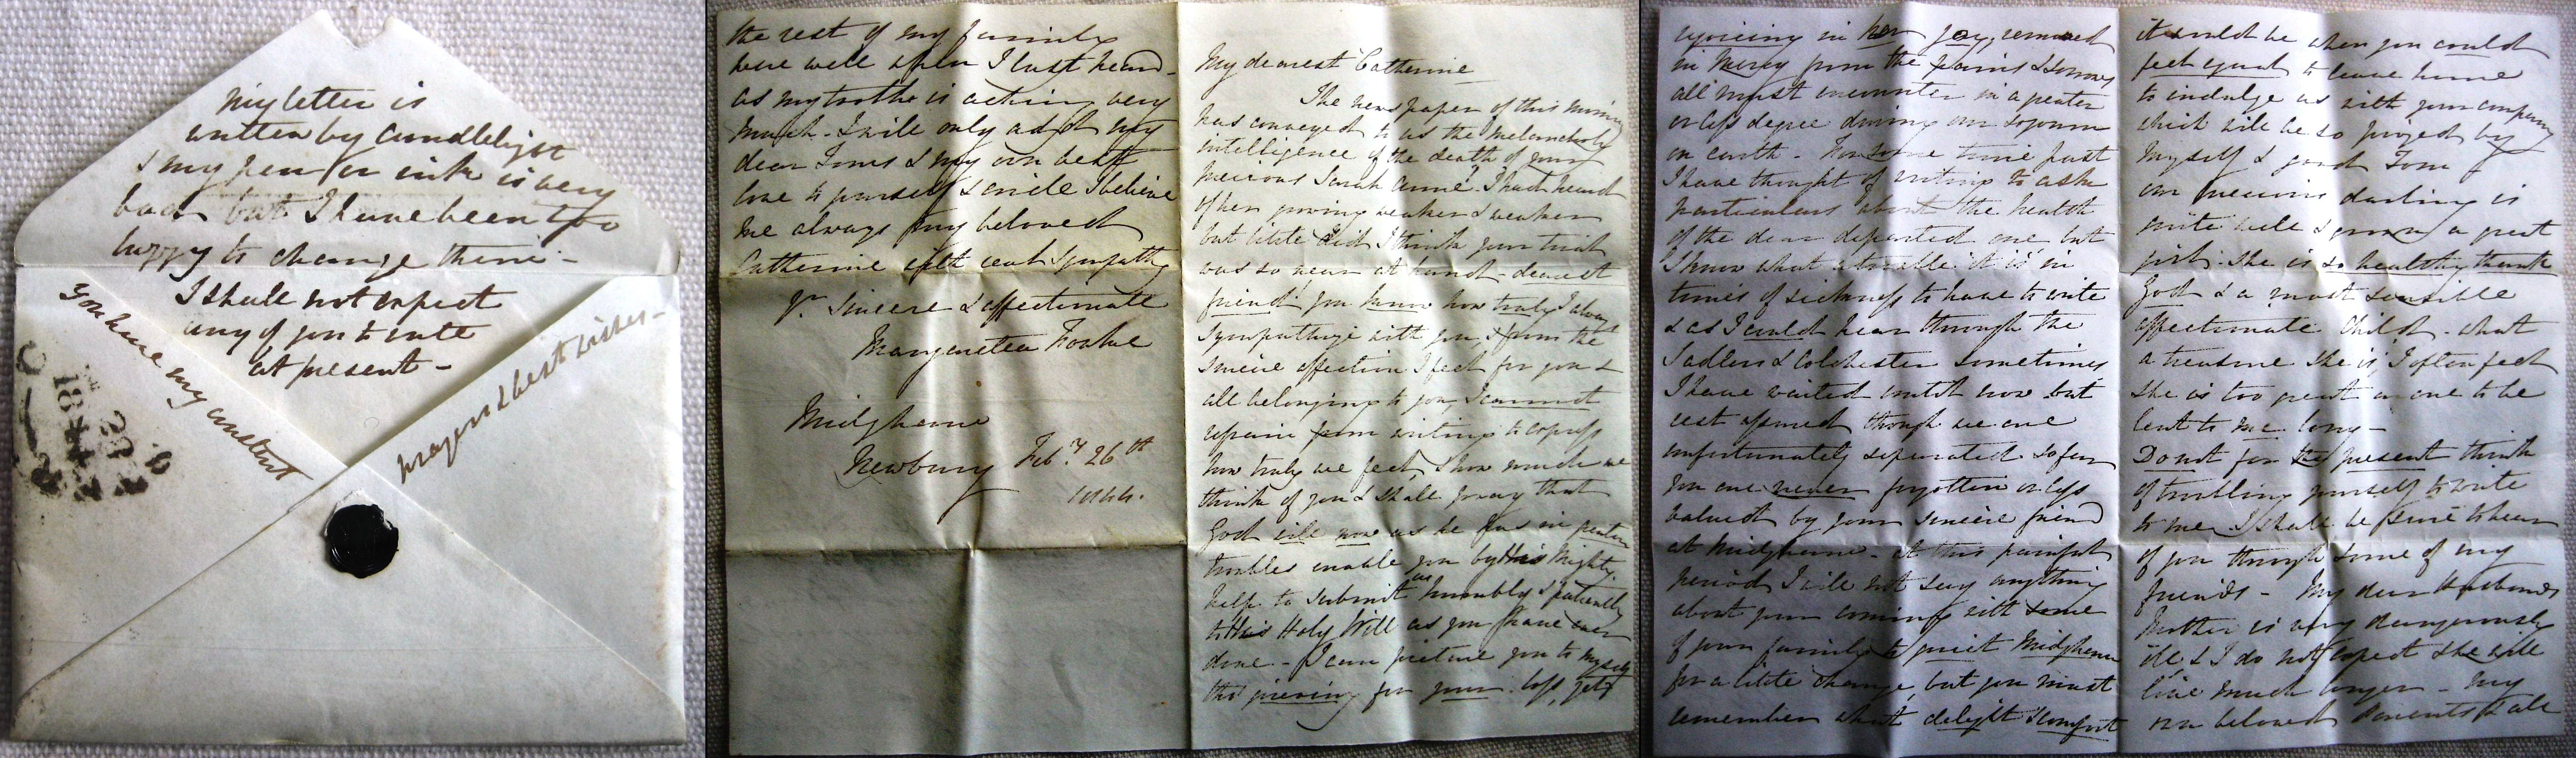 My letter is
written by Candlelight
& my pen or ink is very
bad but I have been too
happy to change them -
I shall not expect
any of you to write
at present -
You have my constant
prayers & best wishes -
the rest of my family
were well when I last heard -
as my tooth is aching very
much - I will only add my
dear Toms & my own best
love to yourself & circle & believe
me always my beloved
Catherine with real sympathy
Yr. sincere & affectionate
Margaretta
Midghame
Newbury Feby 26th
1844.
My dearest Catherine
The newspaper of this morning
has conveyed to us the melancholy
intelligence of the death of your
precious Sarah Anne! I had heard
of her growing weaker & weaker
but little did I think your trial
was so near at hand - dearest
friend you know how truly I always
sympathize with you, & from the
sincere affection I feel for you &
all belonging to you, I cannot
refrain from writing to express
how truly we feel, & how much we
think of you & shall pray that
God will now as he has in greater
troubles enable you by His Mighty
help to submit as humbly & patiently
to His Holy Will as you have ever
done - I can picture you to myself
thus grieving for your loss, yet
rejoicing in her joy, removed
in Mercy from the pains & sorrows
all must encounter in a greater
or less degree during our sojourn
on earth - For some time past
I have thought of writing to ask
particulars about the health
of the dear departed one but
I know what a trouble it is in
times of sickness to have to write
& as I could hear through the
Sadlers & Colchester sometimes
I have waited until now but
rest assured though we are
unfortunately separated so far
you are never forgotten or less
valued by your sincere friend
at Midghame - at this painful
period I will not say anything
about your coming with some
of your family to quiet Midghame
for a little change, but you must
remember what delight & comfort
it would be when you could
feel equal to leave home
to indulge us with your company
which will be so prized by
myself & good Tom
our precious darling is
quite well & grown a great
girl. She is so healthy thank
God & a most sensible
affectionate Child - what
a treasure she is, I often feel
she is too great a one to be
lent to me long -
Do not for the present think
of troubling yourself to write
to me I shall be sure to hear
of you through some of my
friends - My dear Husbands
Mother is very dangerously
ill & I do not expect she will
live much longer - My
own beloved Parents & all